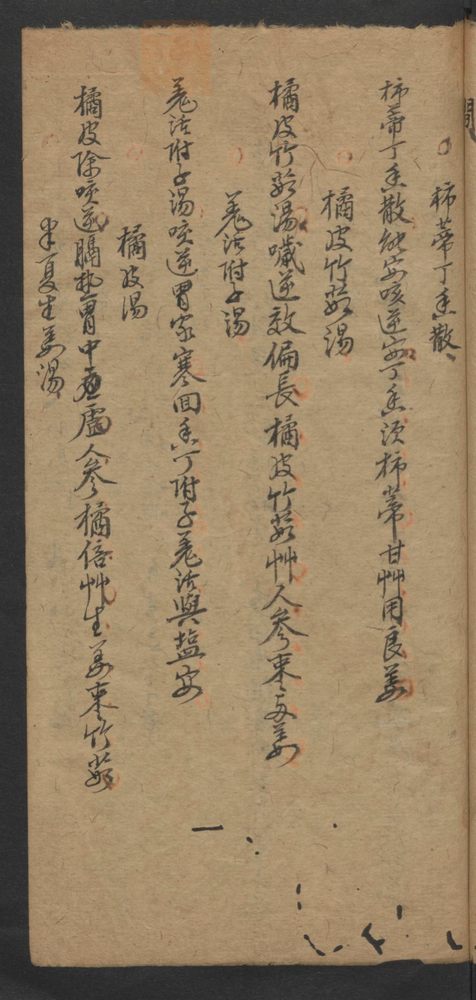 柿蒂丁香散
柿蒂丁香散能安咳逆安丁香須柿蒂甘艸用良姜
橘皮竹茹湯
橘皮竹茹湯噦逆效偏長橘皮竹茹艸人參棗與姜
羗活附子湯
羗活附子湯咳逆胃家寒囬香丁附子羗活與塩安
橘皮湯
橘皮除咳逆膈热胃中虛人參橘倍艸生姜棗竹茹
半夏生姜湯